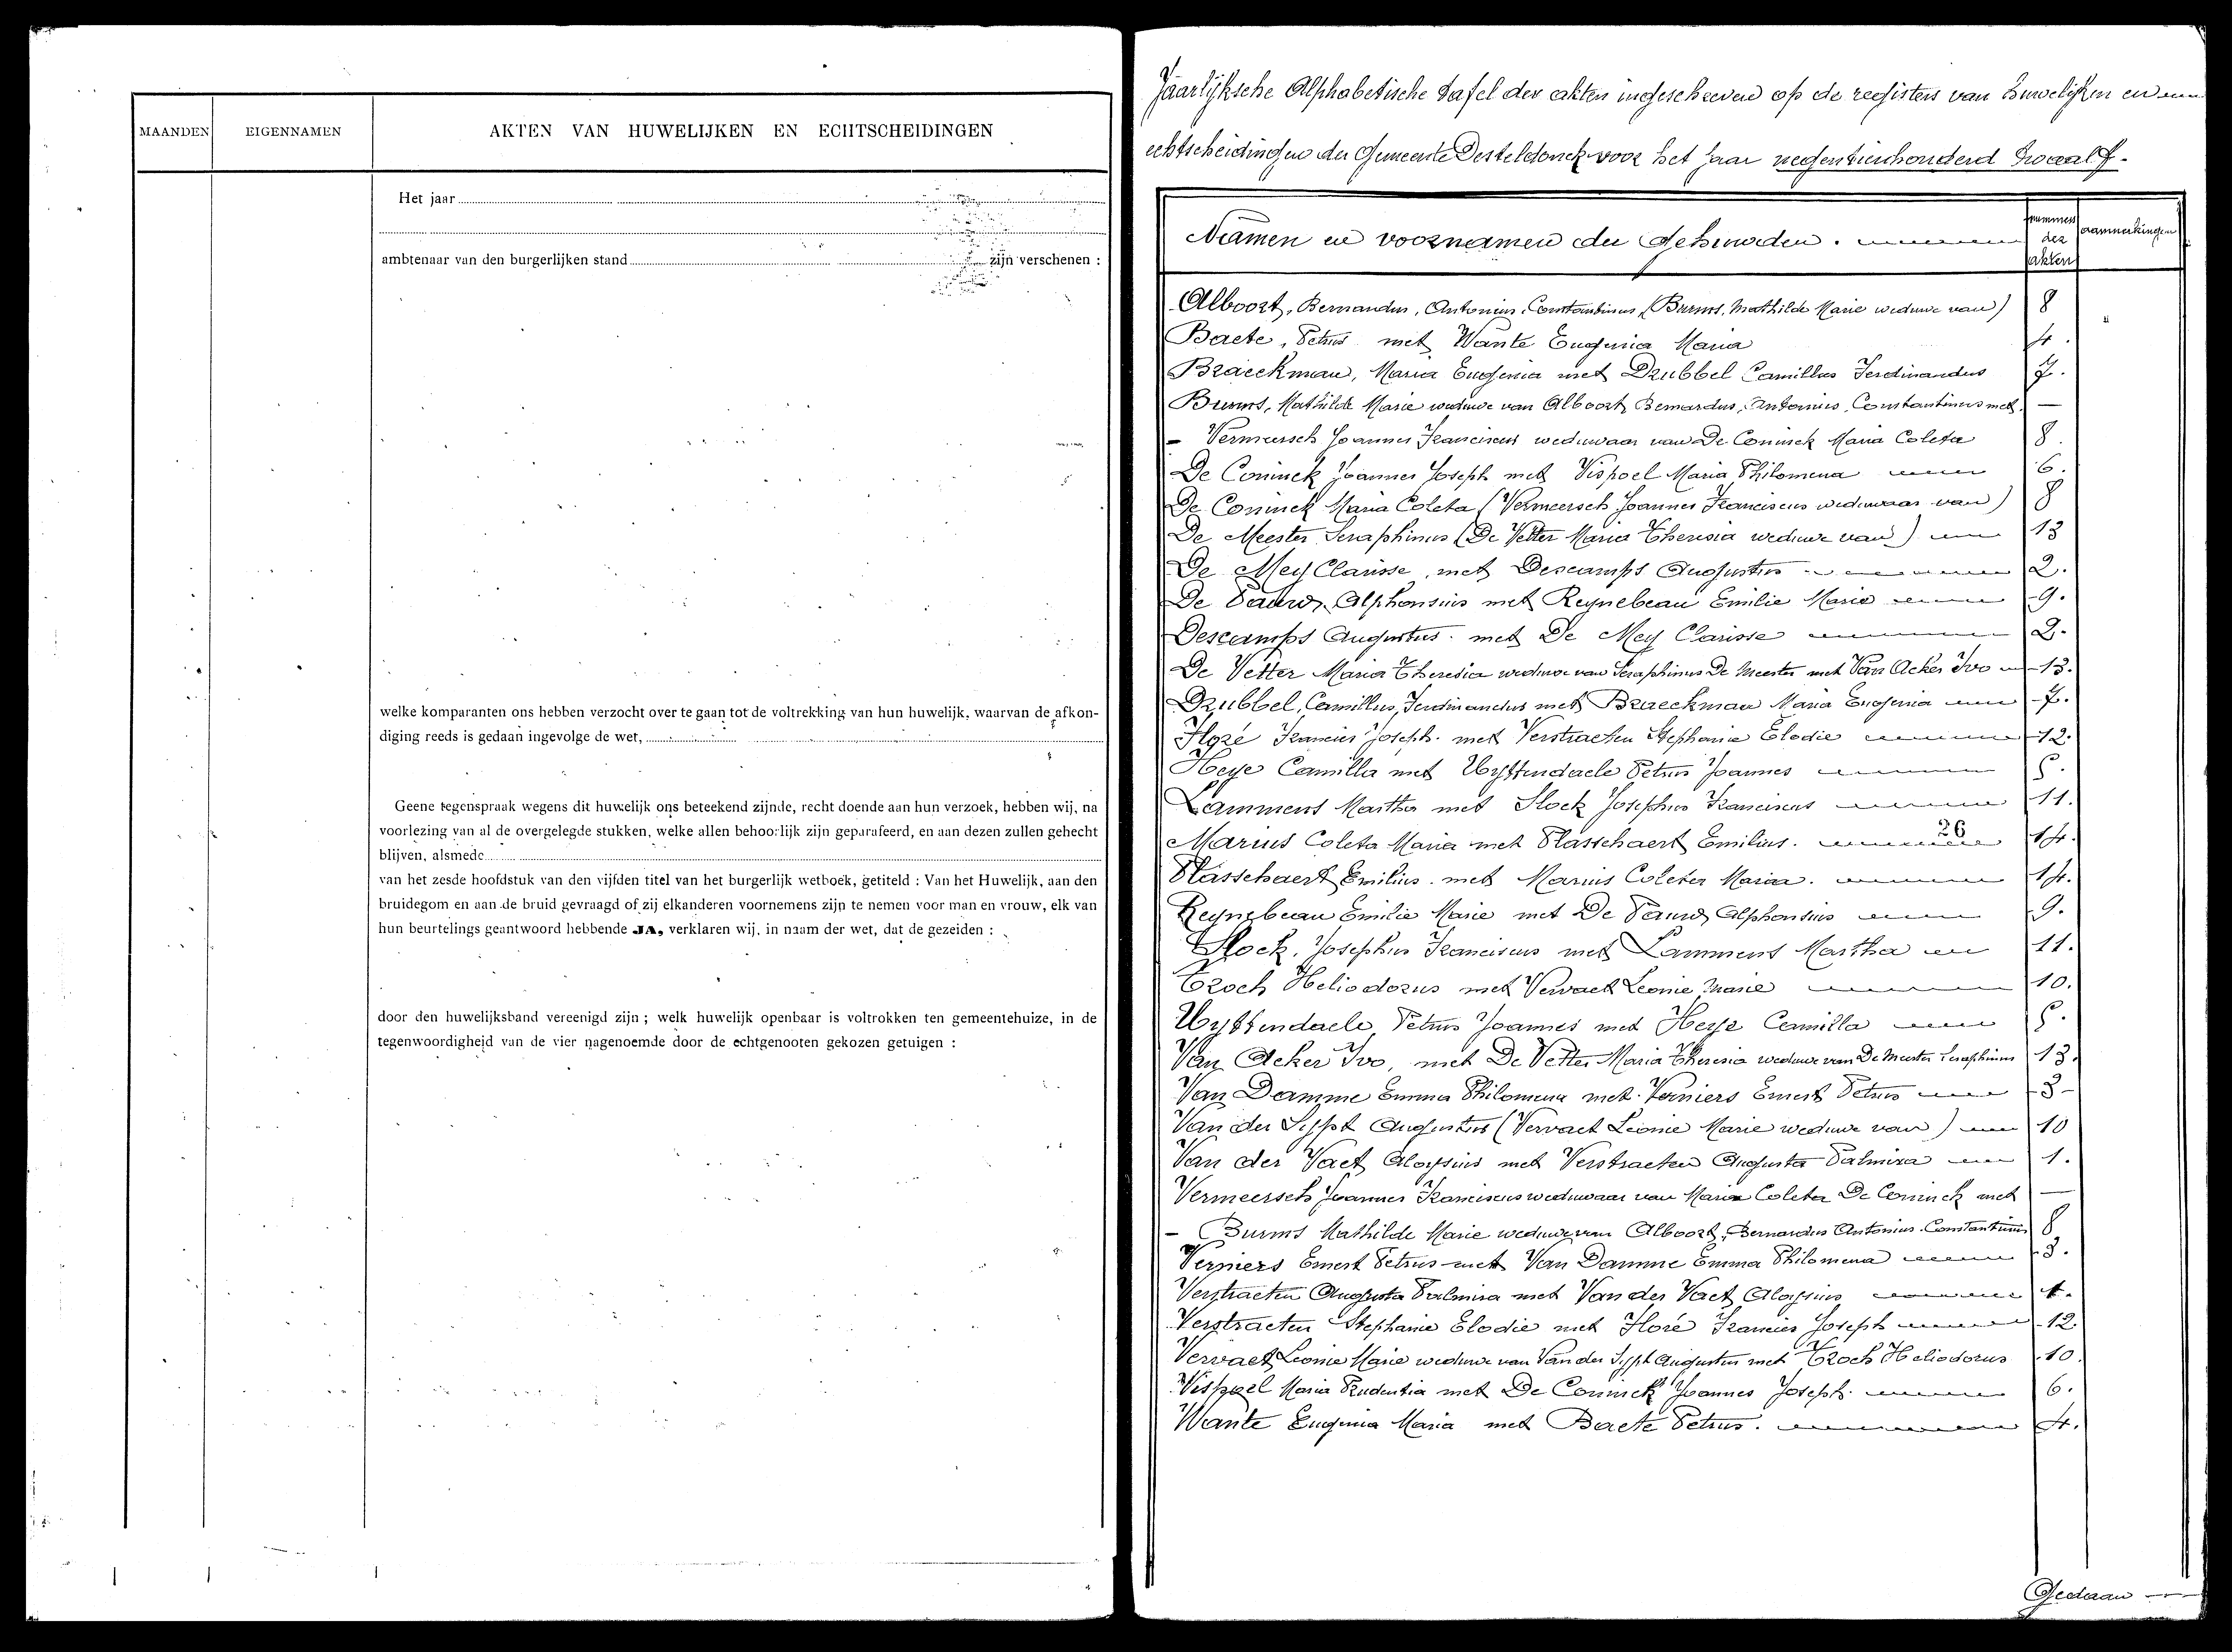 MAANDEN EIGENNAMEN AKTEN VAN HUWELIJKEN EN ECHTSCHEIDINGEN
Het jaar
ambtenaar van den burgerlijken stand zijn verschenen :
welke komparanten ons hebben verzocht over te gaan tot de voltrekking van hun huwelijk, waarvan de afkon-
diging reeds is gedaan ingevolge de wet,
Geene tegenspraak wegens dit huwelijk ons beteekend zijnde, recht doende aan hun verzoek, hebben wij, na
voorlezing van al de overgelegde stukken, welke allen behoorlijk zijn geparafeerd, en aan dezen zullen gehecht
blijven, alsmede
van het zesde hoofdstuk van den vijfden titel van het burgerlijk wetboek, getiteld : Van het Huwelijk, aan den
bruidegom en aan de bruid gevraagd of zij elkanderen voornemens zijn te nemen voor man en vrouw, elk van
hun beurtelings geantwoord hebbende JA, verklaren wij, in naam der wet, dat de gezeiden :
door den huwelijksband vereenigd zijn ; welk huwelijk openbaar is voltrokken ten gemeentehuize, in de
tegenwoordigheid van de vier nagenoemde door de echtgenooten gekozen getuigen :
Jaarlijksche Alphabetische tafel der akten ingeschreven op de registers van huwelijken en
echtscheidingen der Gemeente Desteldonck voor het jaar negentienhonderd twaalf.
Namen en voornamen der Gehuwden. nummers der akten aanmerkingen
Alboort, Bernardus, Antonius, Constantinus, (Burms, Mathilde Marie weduwe van) 8
Baete, Petrus met Wante Eugenia Maria 4.
Braeckman, Maria Eugenia met Drubbel Camillus Ferdinandus 7.
Burms, Mathilde Marie weduwe van Alboort, Bernardus, Antonius, Constantinus met —
- Vermeersch Joannes Franciscus weduwaar van De Coninck Maria Coleta 8.
De Coninck Joannes Joseph met Vispoel Maria Philomena 6.
De Coninck Maria Coleta (Vermeersch Joannes Franciscus weduwaar van) 8
De Meester Seraphinus (De Vetter Maria Theresia weduwe van) 13
De Mey Clarisse, met Descamps Augustus 2.
De Pauw, Alphonsius met Reynebeau Emilie Marie 9.
Descamps Augustus. met De Mey Clarisse 2.
De Vetter Maria Theresia weduwe van Seraphinus De Meester met Van Acker Ivo 13.
Drubbel, Camillus, Ferdinandus met Braeckman Maria Eugenia 7.
Floré Francies Joseph. met Verstraeten Stephanie Elodie 12.
Heye Camilla met Uyttendaele Petrus Joannes 5.
Lammens Martha met Slock Josephus Franciscus 11.
Marius Coleta Maria met Plasschaert Emilius. 26 14.
Plasschaert Emilius. met Marius Coleta Maria. 14.
Reynebeau Emilie Marie met De Pauw Alphonsius 9.
Slock, Josephus Franciscus met Lammens Martha 11.
Troch Heliodorus met Vervaet Leonie Marie 10.
Uyttendaele Petrus Joannes met Heye Camilla 5.
Van Acker Ivo, met De Vetter Maria Theresia weduwe van De Meester Seraphinus 13.
Van Damme Emma Philomena met Verniers Ernest Petrus 3-
Van der Sypt Augustus (Vervaet Leonie Marie weduwe van) 10
Van der Vaet Aloysius met Verstraeten Augusta Palmira 1.
Vermeersch Joannes Franciscus weduwaar van Maria Coleta De Coninck met —
- Burms Mathilde Marie weduwe van Alboort, Bernardus Antonius. Constantinus 8
Verniers Ernest Petrus met Van Damme Emma Philomena 3.
Verstraeten Augusta Palmira met Van der Vaet Aloysius 1.
Verstraeten Stephanie Elodie met Floré Francies Joseph 12.
Vervaet Leonie Marie weduwe van Van der Sypt Augustus met Troch Heliodorus 10.
Vispoel Maria Prudentia met De Coninck Joannes Joseph. 6.
Wante Eugenia Maria met Baete Petrus. 4.
Gedaan